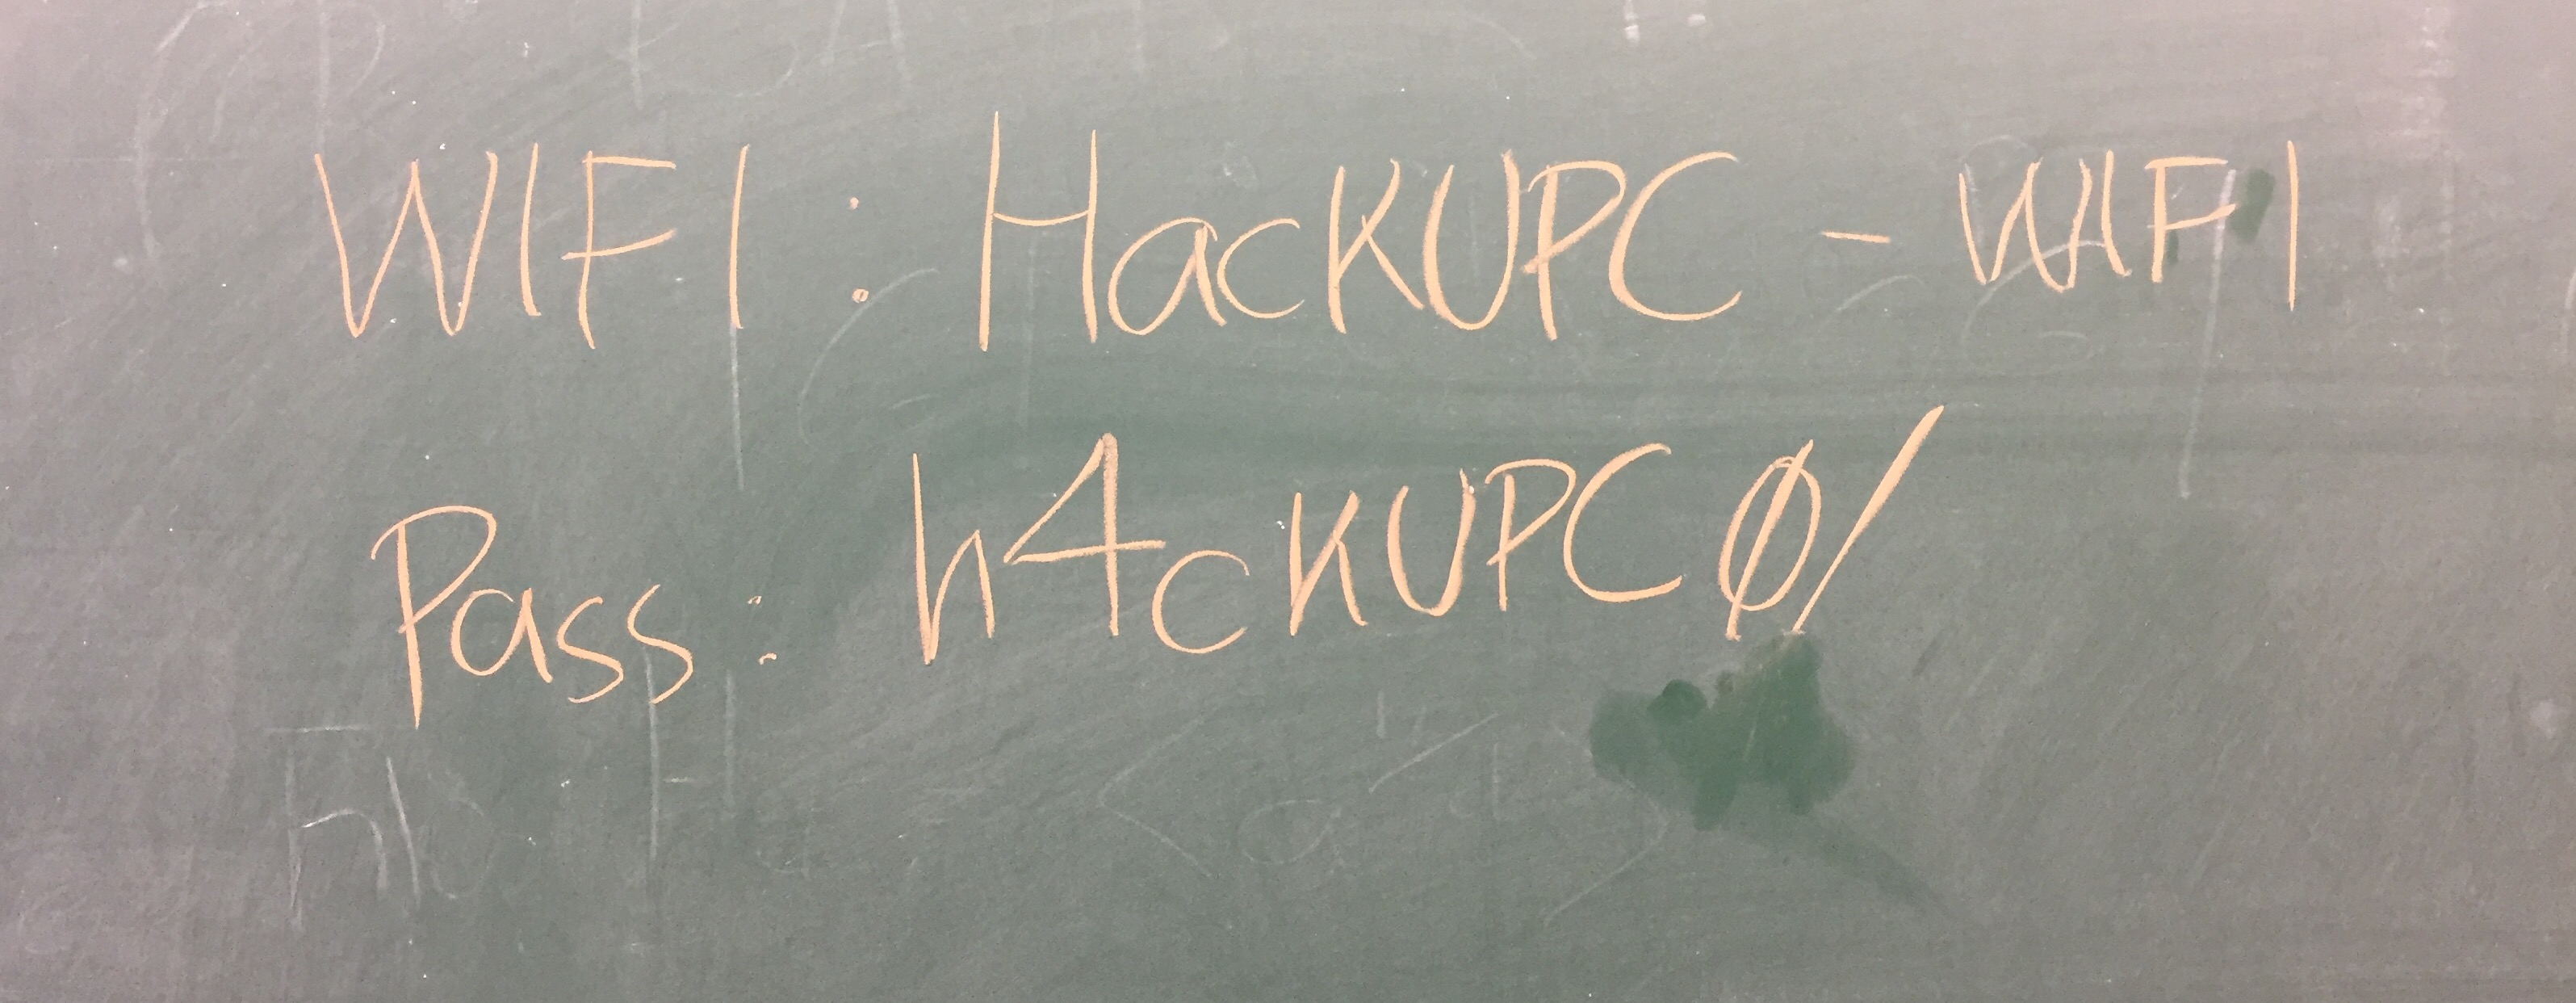 WIFI: HacKUPC - WIFI
Pass: h4cKUPCØ/